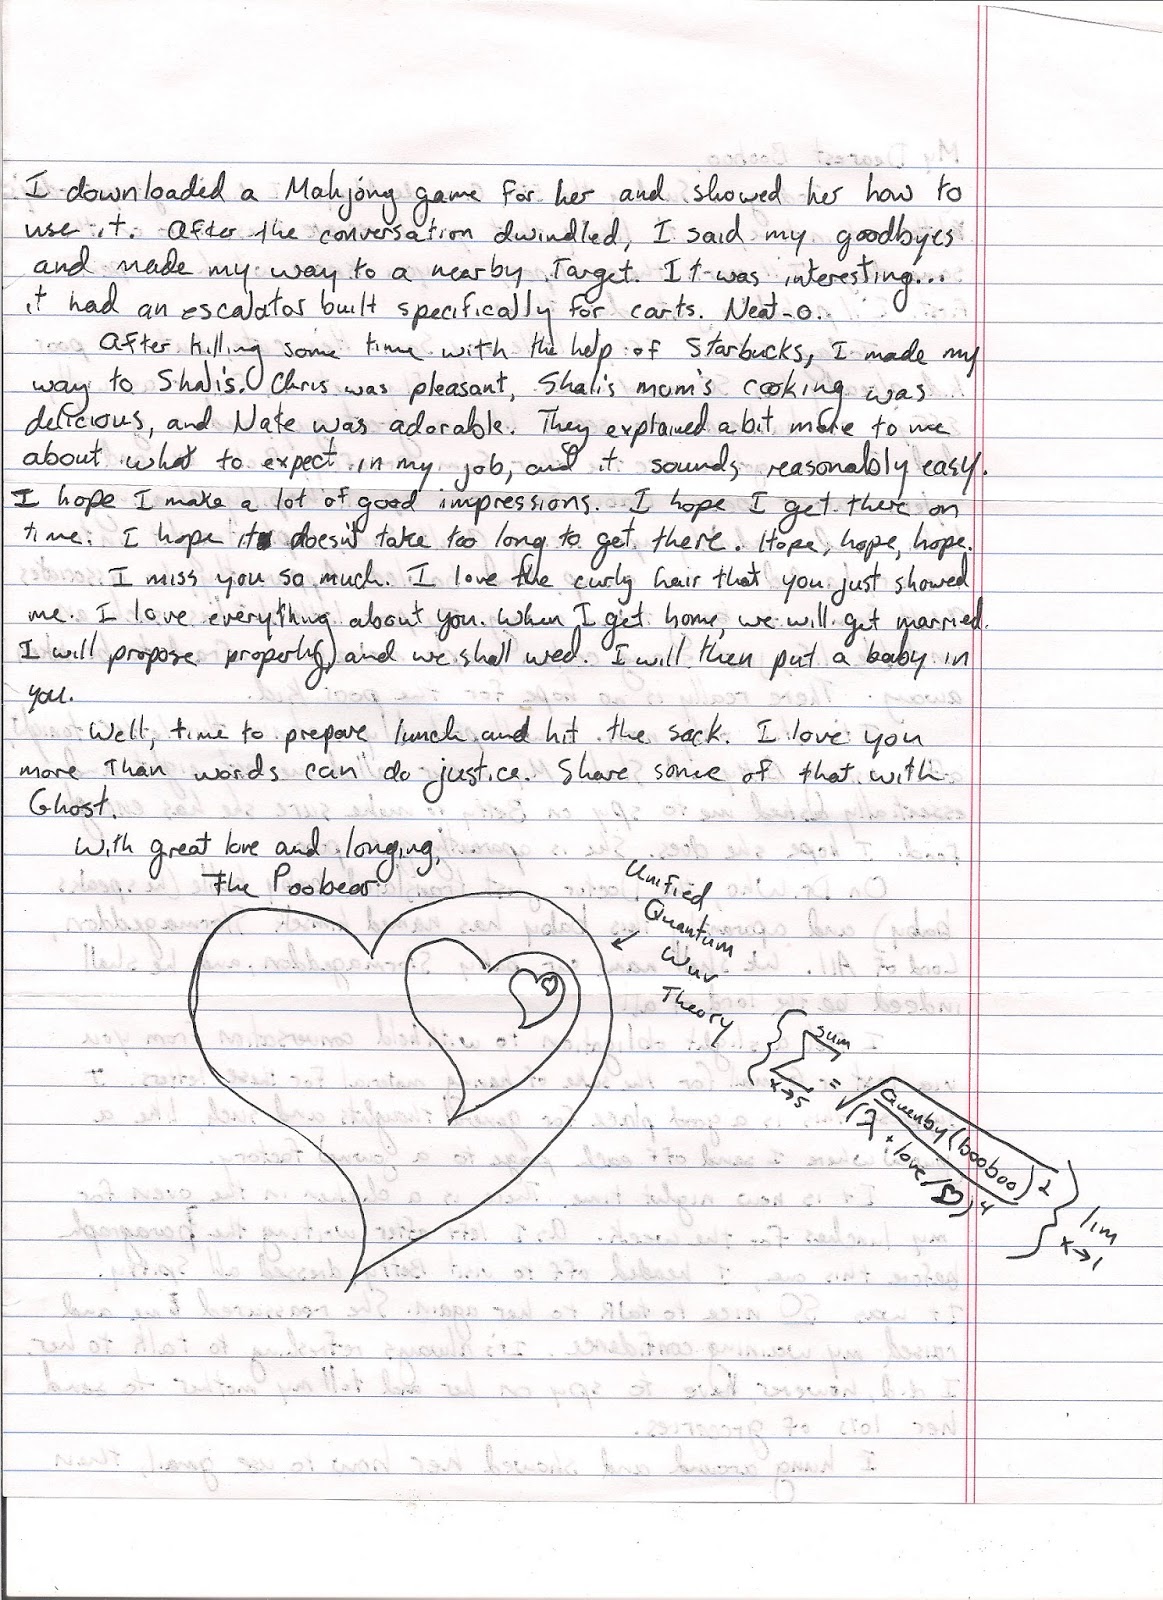 I downloaded a Mahjong game for her and showed her how to
use it. After the conversation dwindled, I said my goodbyes
and made my way to a nearby Target. It was interesting...
it had an escalator built specifically for carts. Neat-o.
After killing some time with the help of Starbucks, I made my
way to Shali's. Chris was pleasant, Shali's mom's cooking was
delicious, and Nate was adorable. They explained a bit more to me
about what to expect in my job, and it sounds reasonably easy.
I hope I make a lot of good impressions. I hope I get there on
time. I hope it doesn't take too long to get there. Hope, hope, hope.
I miss you so much. I love the curly hair that you just showed
me. I love everything about you. When I get home, we will get married.
I will propose properly, and we shall wed. I will then put a baby in
you.
Well, time to prepare lunch and hit the sack. I love you
more than words can do justice. Share some of that with
Ghost.
With great love and longing,
The Poobear
Unified
Quantum
Wuv
Theory
{ sum Σ x→5 = √ Quenby(booboo)² / (7 + love/♡)⁴ } lim x→1